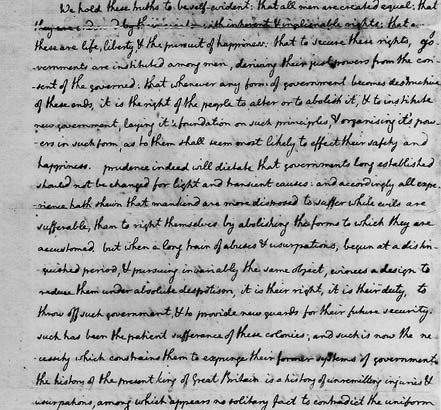 We hold these truths to be self-evident: that all men are created equal; that
they are endowed by their with inherent & inalienable rights: that
these are life, liberty, & the pursuit of happiness: that to secure these rights, go
vernments are instituted among men, deriving their just powers from the con-
sent of the governed: that whenever any form of government becomes destructive
of these ends, it is the right of the people to alter or to abolish it, & to institute
new government, laying it's foundation on such principles, & organising it's pow-
ers in such form, as to them shall seem most likely to effect their safety and
happiness. prudence indeed will dictate that governments long established
should not be changed for light and transient causes: and accordingly all expe
rience hath shewn that mankind are more disposed to suffer while evils are
sufferable, than to right themselves by abolishing the forms to which they are
accustomed but when a long train of abuses & usurpations, begun at a distin-
guished period, & pursuing invariably the same object, evinces a design to
reduce them under absolute despotism, it is their right, it is their duty, to
throw off such government, & to provide new guards for their future security.
such has been the patient sufferance of these colonies; and such is now the ne
cessity which constrains them to expunge their former systems of government
the history of the present king of Great Britain is a history of unremitting injuries &
usurpations, among which appears no solitary fact to contradict the uniform